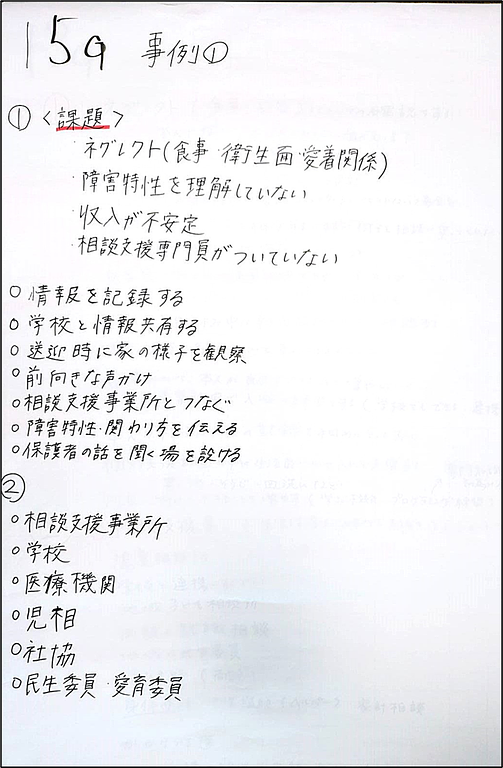 15G 事例①
①〈課題〉
・ネグレクト(食事・衛生面・愛着関係)
・障害特性を理解していない
・収入が不安定
・相談支援専門員がついていない
○情報を記録する
○学校と情報共有する
○送迎時に家の様子を観察
○前向きな声かけ
○相談支援事業所とつなぐ
○障害特性・関わり方を伝える
○保護者の話を聞く場を設ける
②
○相談支援事業所
○学校
○医療機関
○児相
○社協
○民生委員・愛育委員